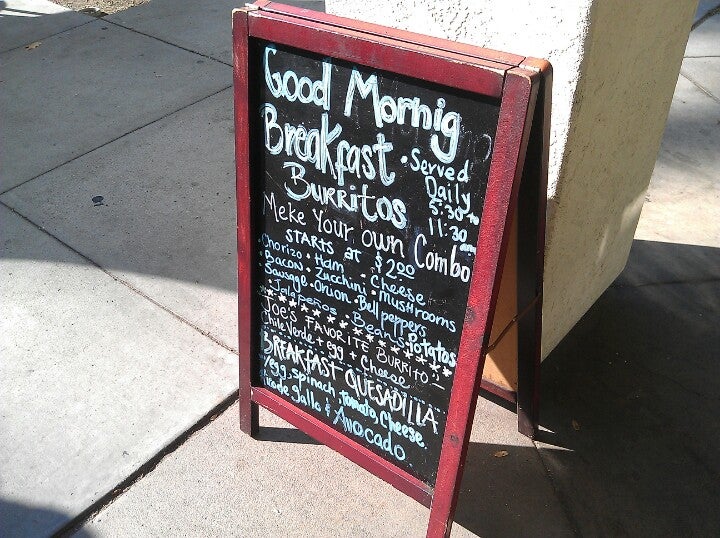 Good Mornig
Breakfast
Burritos
• Served
Daily
5:30 to
11:30 am
Meke Your own Combo
STARTS at $2.00
Chorizo • Ham • Cheese
• Bacon • Zucchini • MUSHROOMS
Sausage • Onion • Bell peppers
• Jalapeños Beans Potatos
JOE'S FAVORITE BURRITO
Chile Verde + egg + Cheese
BREAKFAST QUESADILLA
egg, spinach, tomato, Cheese
gallo & Avocado